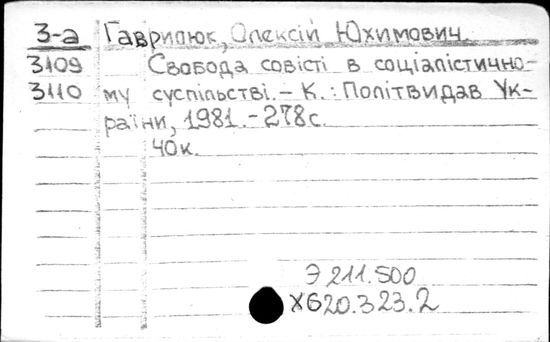 3-а Гаврилюк, Олексій Юхимович.
3109 Свобода совісті в соціалістично-
3110 му суспільстві. - К.: Політвидав Ук-
раїни, 1981. - 278с.
40к.
Э 211.500
Х620.323.2